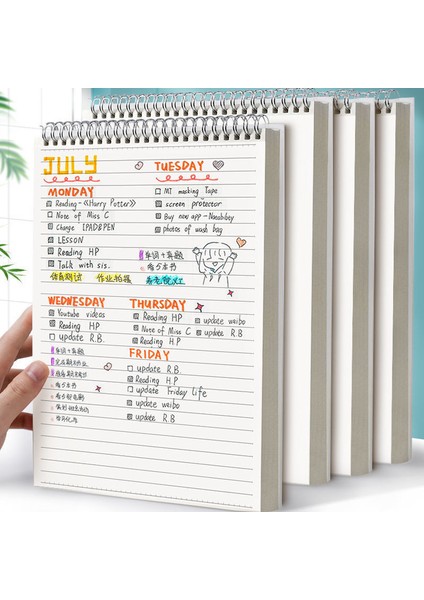 JULY
MONDAY
Reading-《Harry Potter》
Note of Miss C
Change IPAD&PEN
LESSON
Reading HP
Talk with sis.
TUESDAY
MT masking Tape
screen protector
Buy new app-
photos of wash bag
单词+真题
看5本书
WEDNESDAY
Youtube videos
Reading HP
update R.B.
单词+真题
看5本书
THURSDAY
Reading HP
Note of Miss C
Reading HP
update weibo
update R.B
FRIDAY
update R.B
Reading H.P
update Friday life
update weibo
update R.B